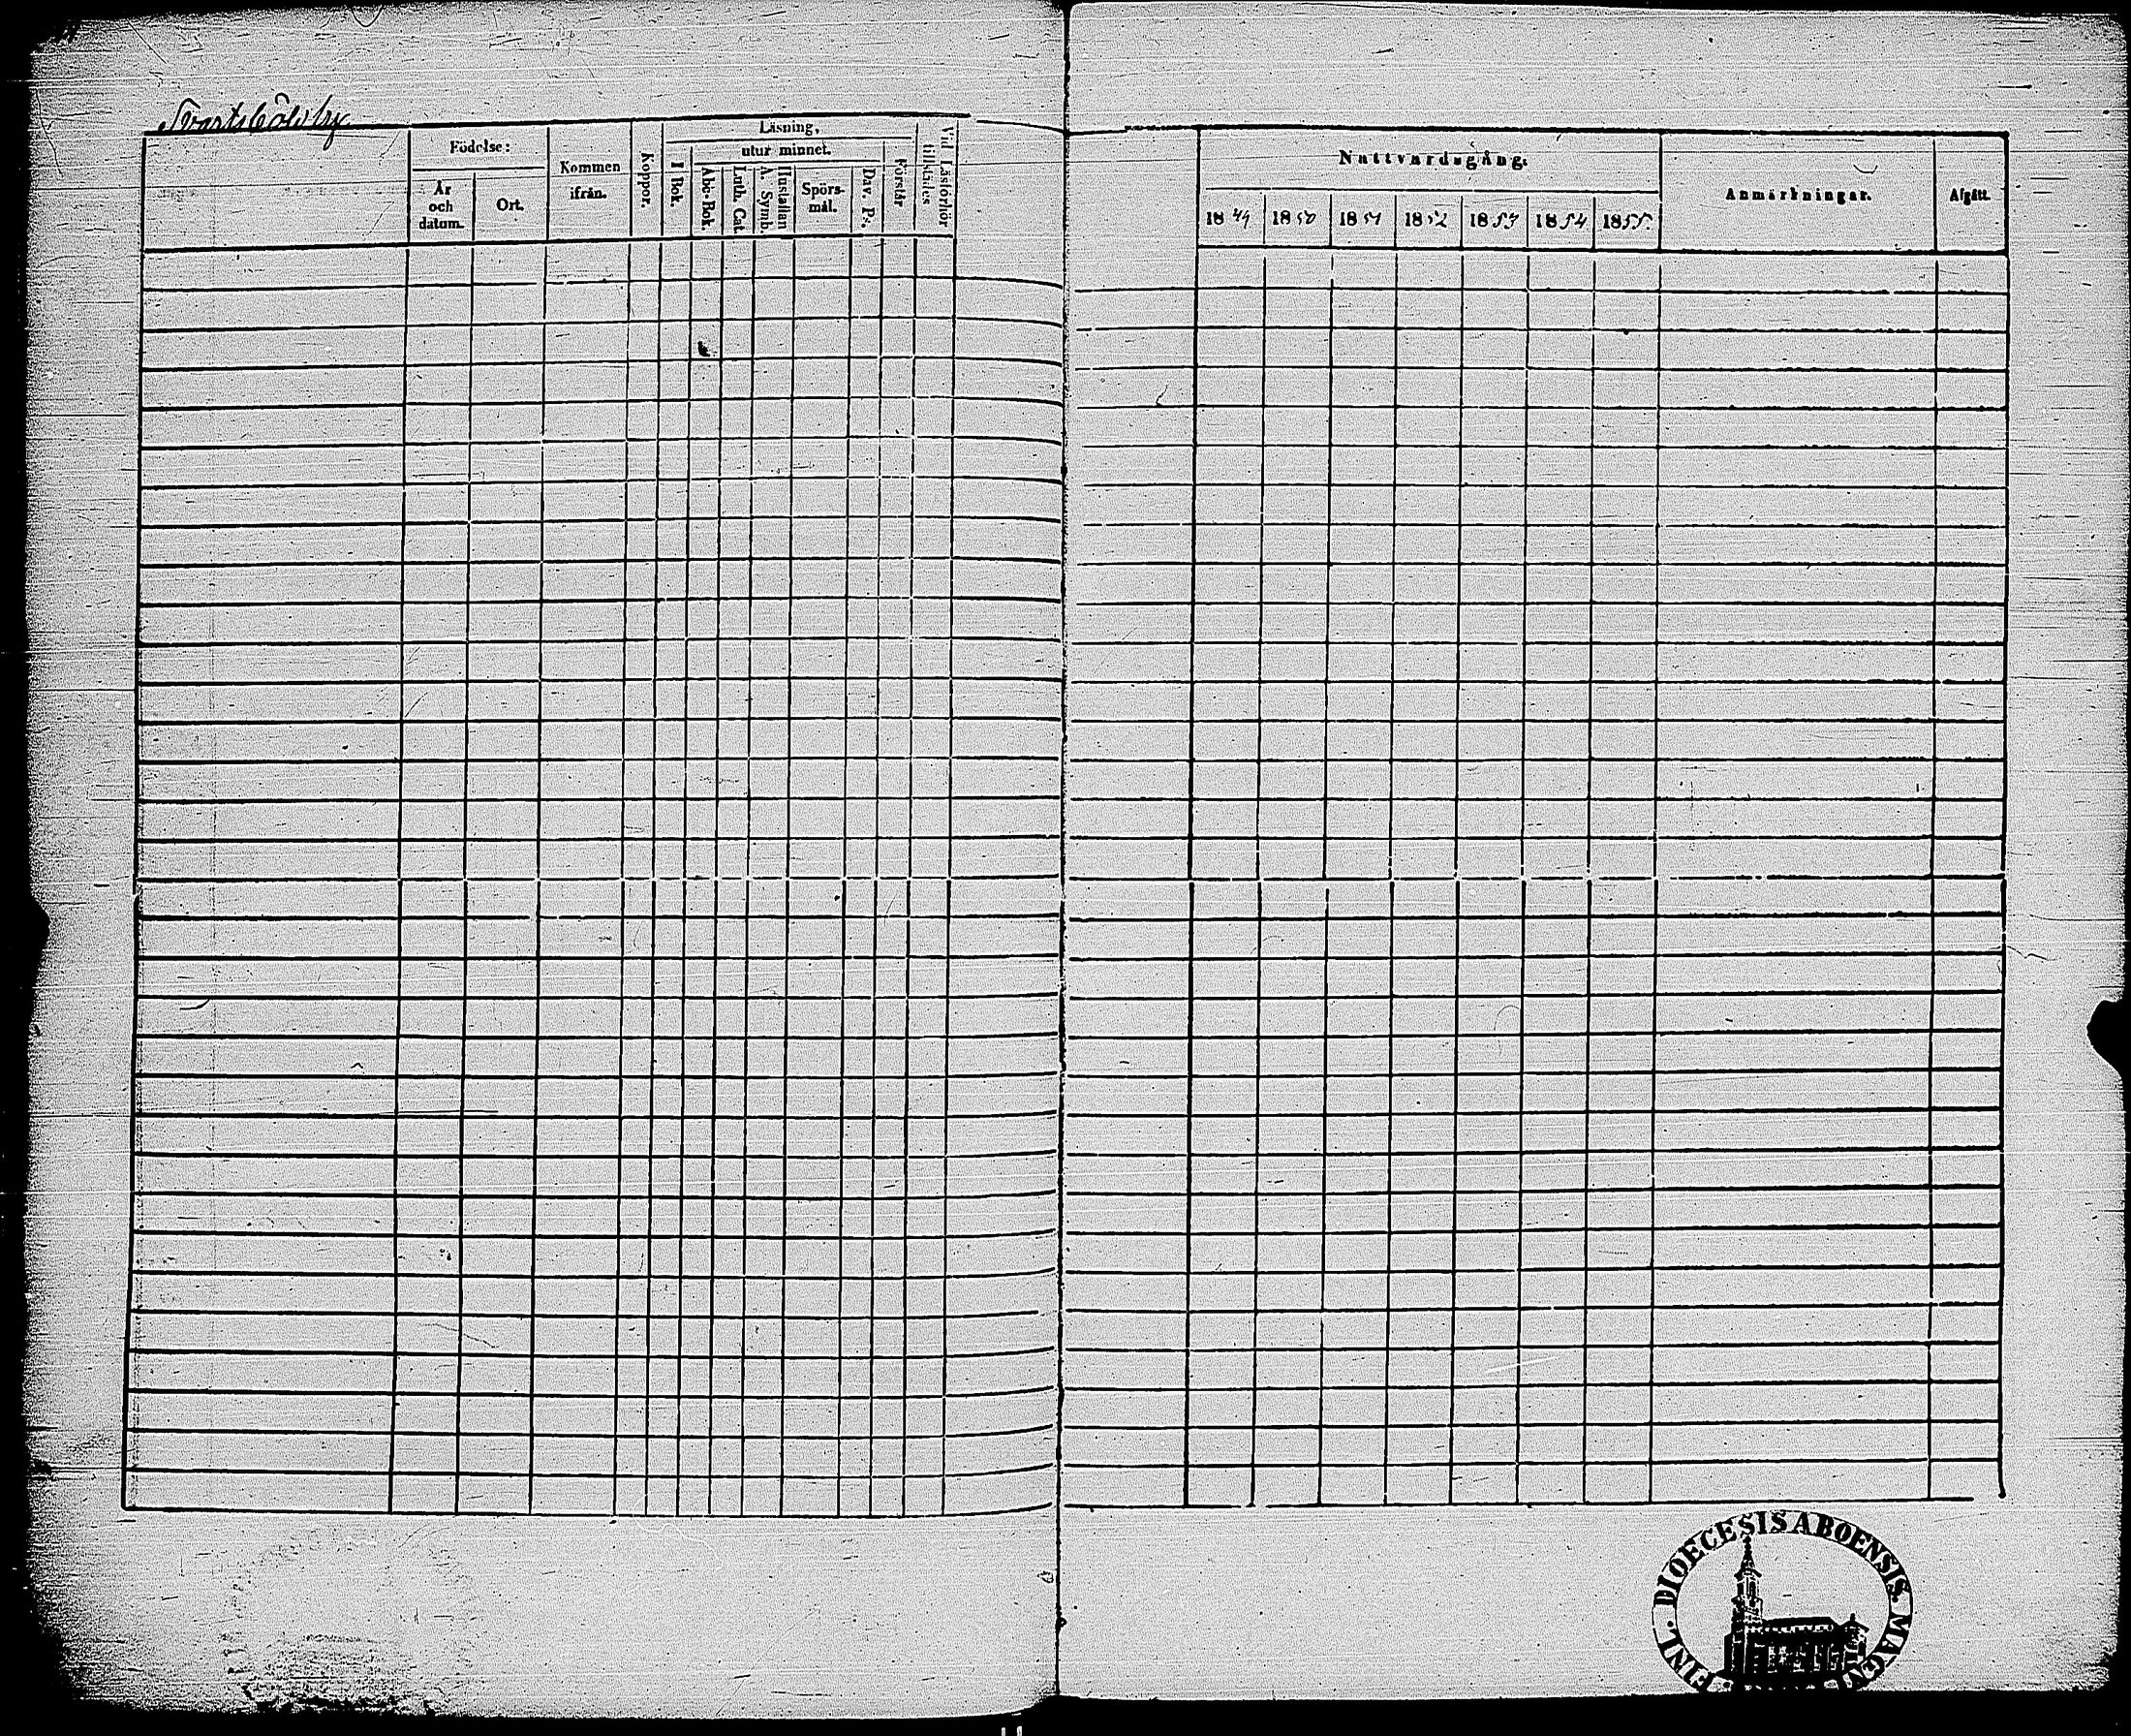 Svartsböle by
Födelse:
År
och
datum.
Ort.
Kommen
ifrån.
Koppor.
Läsning,
utur minnet.
I Bok.
Abc-Bok.
Luth. Cat.
Hustaflan
A. Symb.
Spörs-
mål.
Dav. P.
Förstår
Vid Läsförhör
tillstädes
Nattvardsgång.
1849 1850 1851 1852 1853 1854 1855.
Anmärkningar.
Afgått.
FINL. DIOECESIS ABOENSIS. MAGNI